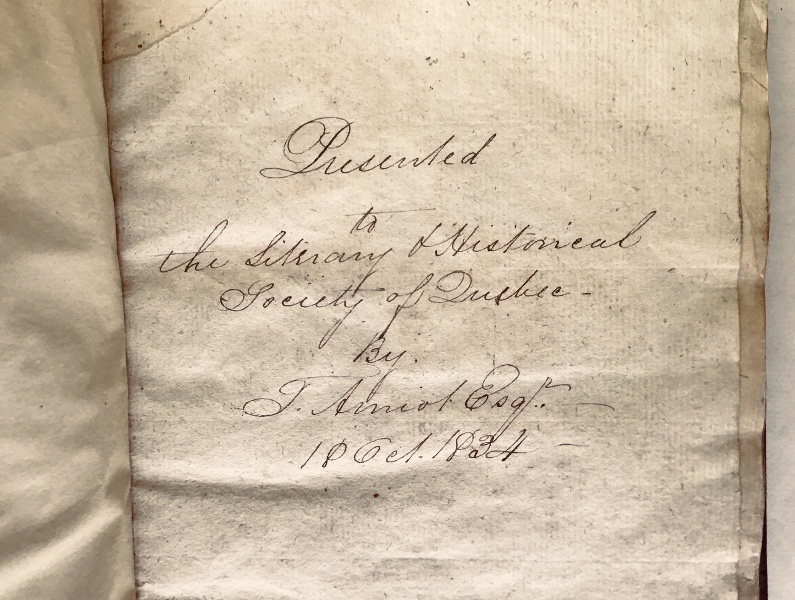 Presented
to
the Literary & Historical
Society of Quebec -
By.
T. Amiot Esqr. —
18 Oct. 1834 —